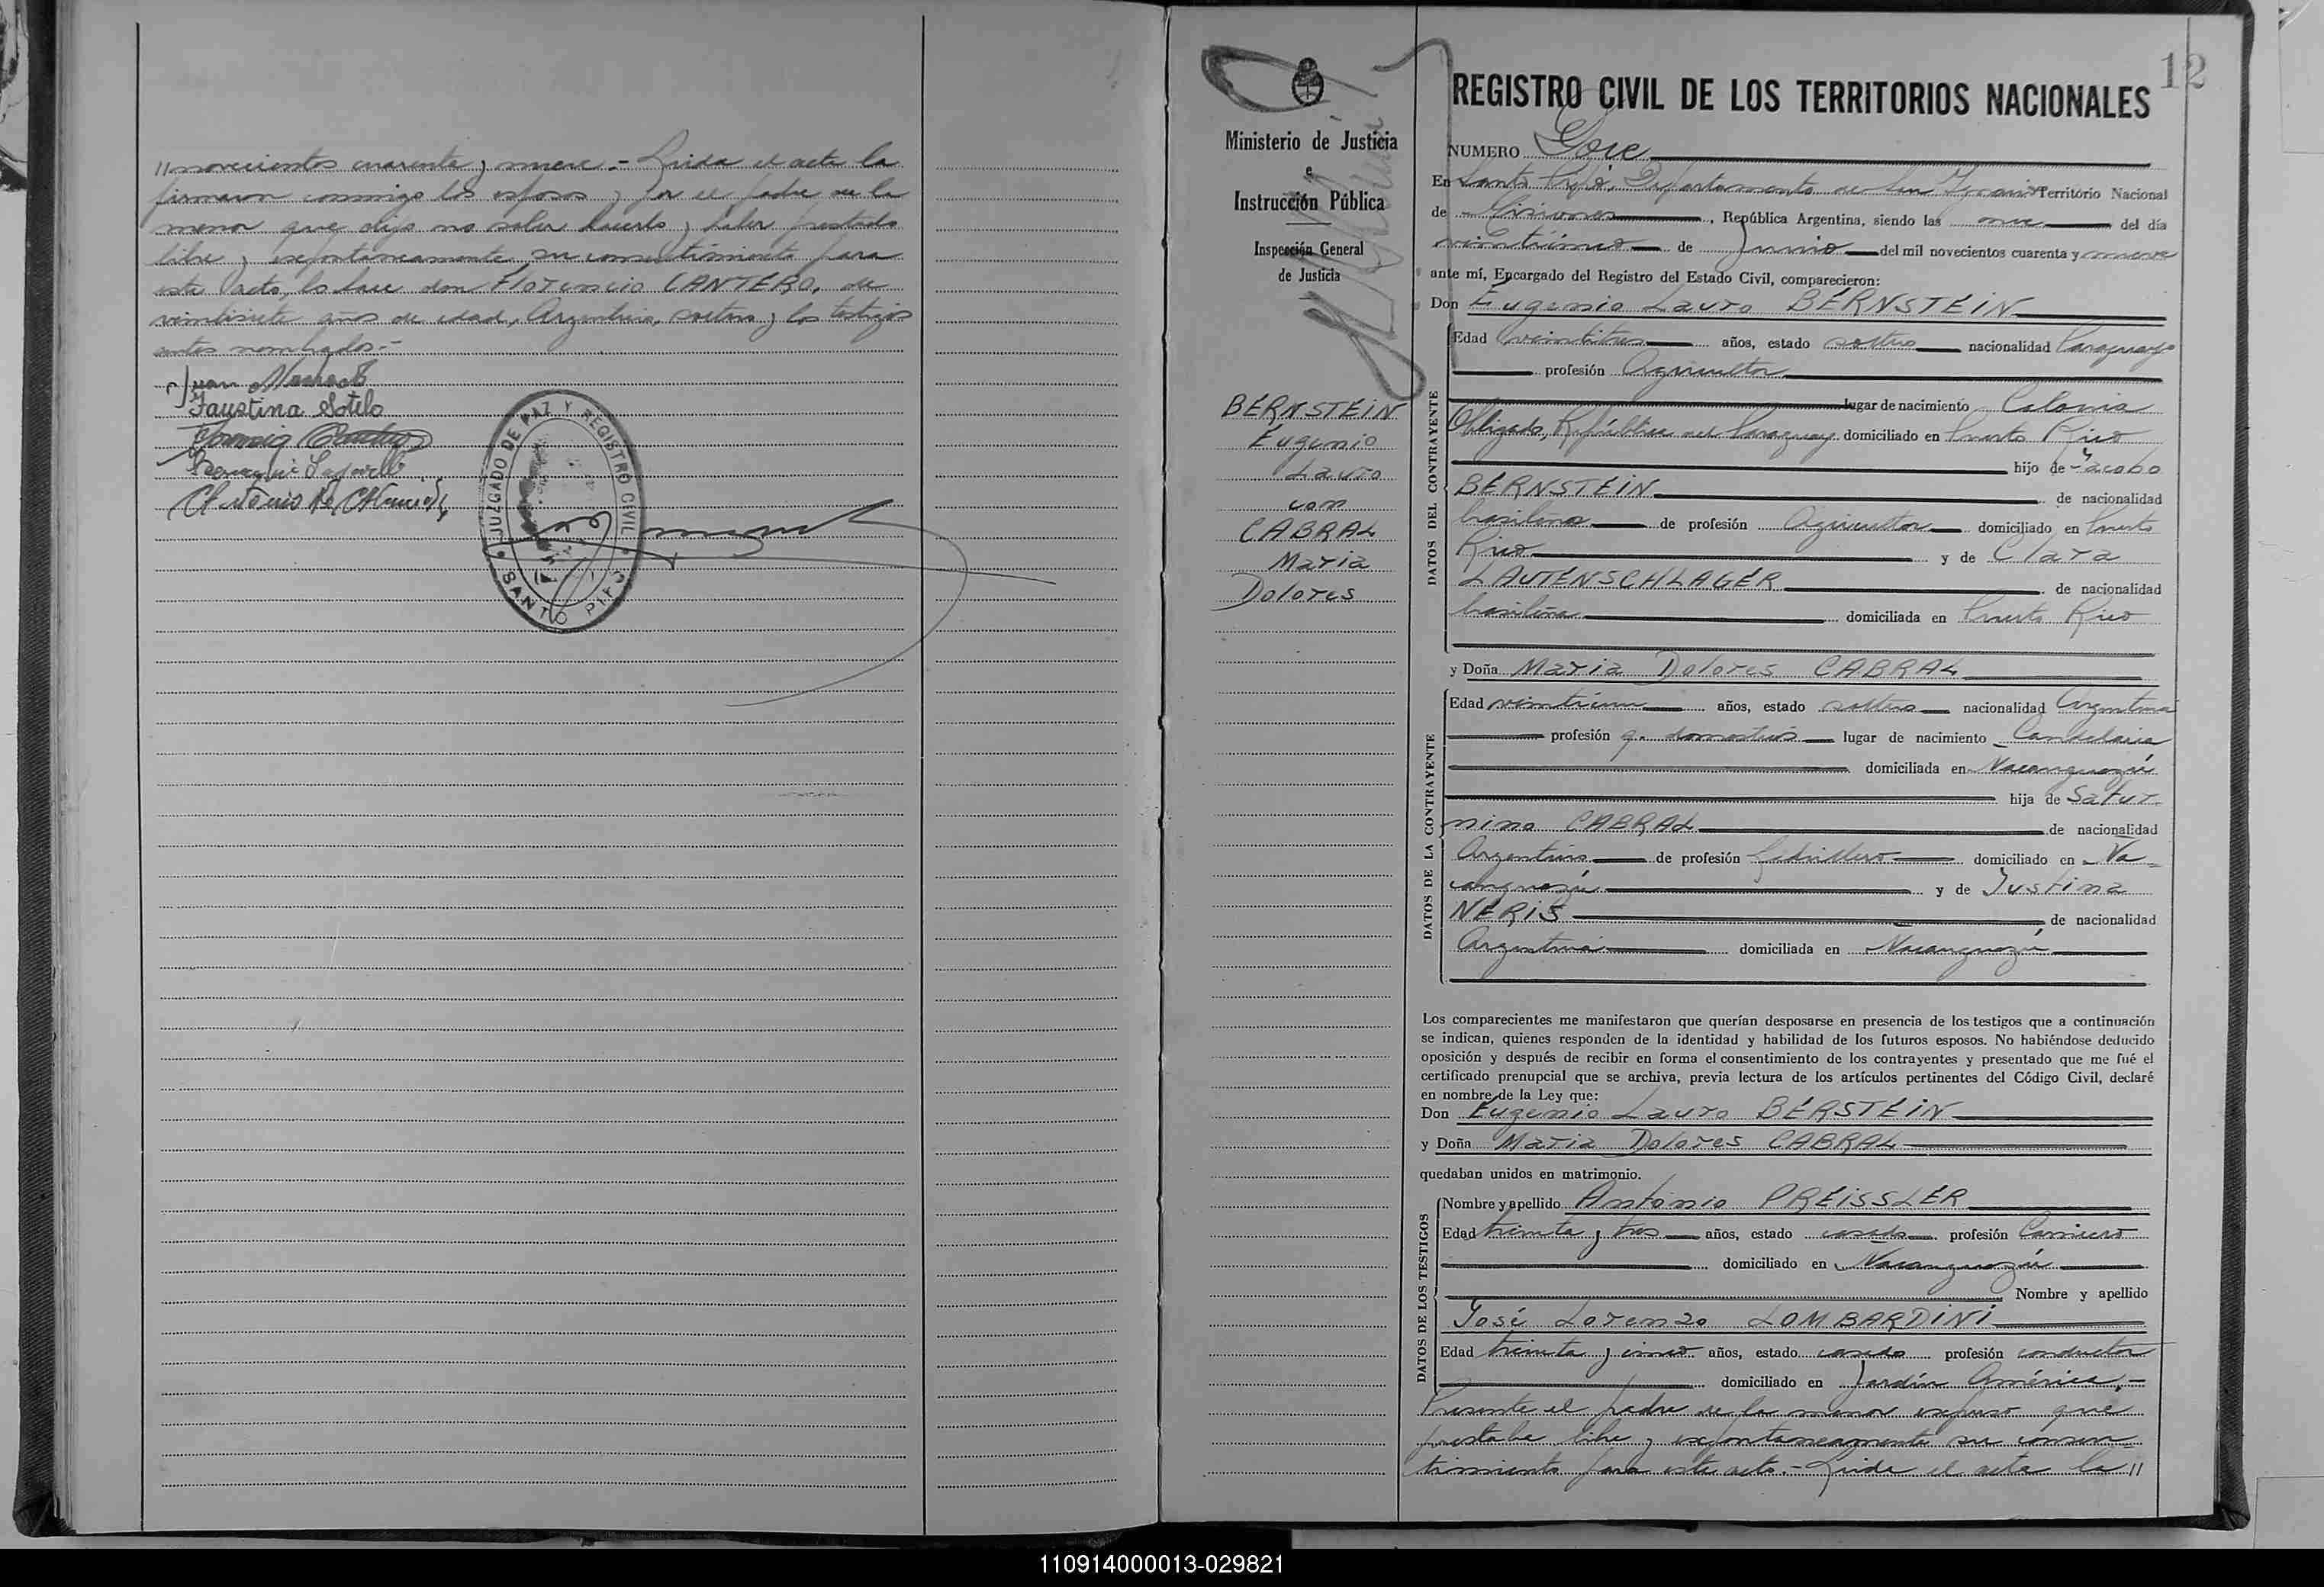 // novecientos cuarenta y nueve.- Leida el acta la
firmaron conmigo los esposos y por el padre de la
menor que dijo no saber hacerlo y haber prestado
libre y espontaneamente su consentimiento para
este acto, lo hace don Florencio CANTERO, de
veintisiete años de edad, Argentino, soltero y los testigos
antes nombrados.-
Juan
Faustina Sotelo
Antonio
JUZGADO DE PAZ Y REGISTRO CIVIL
SANTO PIPÓ
12
Ministerio de Justicia
e
Instrucción Pública
Inspección General
de Justicia
BERNSTEIN
Eugenio
Lauro
con
CABRAL
Maria
Dolores
REGISTRO CIVIL DE LOS TERRITORIOS NACIONALES
NUMERO Doce
En Santo Pipó, Departamento de San Ignacio Territorio Nacional
de Misiones, República Argentina, siendo las once del día
veinticinco de Junio del mil novecientos cuarenta y nueve
ante mí, Encargado del Registro del Estado Civil, comparecieron:
Don Eugenio Lauro BERNSTEIN
DATOS DEL CONTRAYENTE
Edad veintitres años, estado soltero nacionalidad Paraguayo
profesión Agricultor
lugar de nacimiento Colonia
Obligado, República del Paraguay domiciliado en Puerto Rico
hijo de Jacobo
BERNSTEIN de nacionalidad
brasileño de profesión Agricultor domiciliado en Puerto
Rico y de Clara
LAUTENSCHLAGER de nacionalidad
brasileña domiciliada en Puerto Rico
y Doña Maria Dolores CABRAL
DATOS DE LA CONTRAYENTE
Edad veintiún años, estado soltera nacionalidad Argentina
profesión q. domesticos lugar de nacimiento Candelaria
domiciliada en Ñacanguazú
hija de Satur-
nino CABRAL de nacionalidad
Argentino de profesión domiciliado en Ña-
canguazú y de Justina
NERIS de nacionalidad
Argentina domiciliada en Ñacanguazú
Los comparecientes me manifestaron que querían desposarse en presencia de los testigos que a continuación
se indican, quienes responden de la identidad y habilidad de los futuros esposos. No habiéndose deducido
oposición y después de recibir en forma el consentimiento de los contrayentes y presentado que me fué el
certificado prenupcial que se archiva, previa lectura de los artículos pertinentes del Código Civil, declaré
en nombre de la Ley que:
Don Eugenio Lauro BERSTEIN
y Doña Maria Dolores CABRAL
quedaban unidos en matrimonio.
DATOS DE LOS TESTIGOS
Nombre y apellido Antonio PREISSLER
Edad treinta y tres años, estado casado profesión Carnicero
domiciliado en Ñacanguazú
Nombre y apellido
José Lorenzo LOMBARDINI
Edad treinta y cinco años, estado casado profesión conductor
domiciliado en Jardín América.-
Presente el padre de la menor expuso que
prestaba libre y espontaneamente su consen-
timiento para este acto.- Leida el acta la //
110914000013-029821